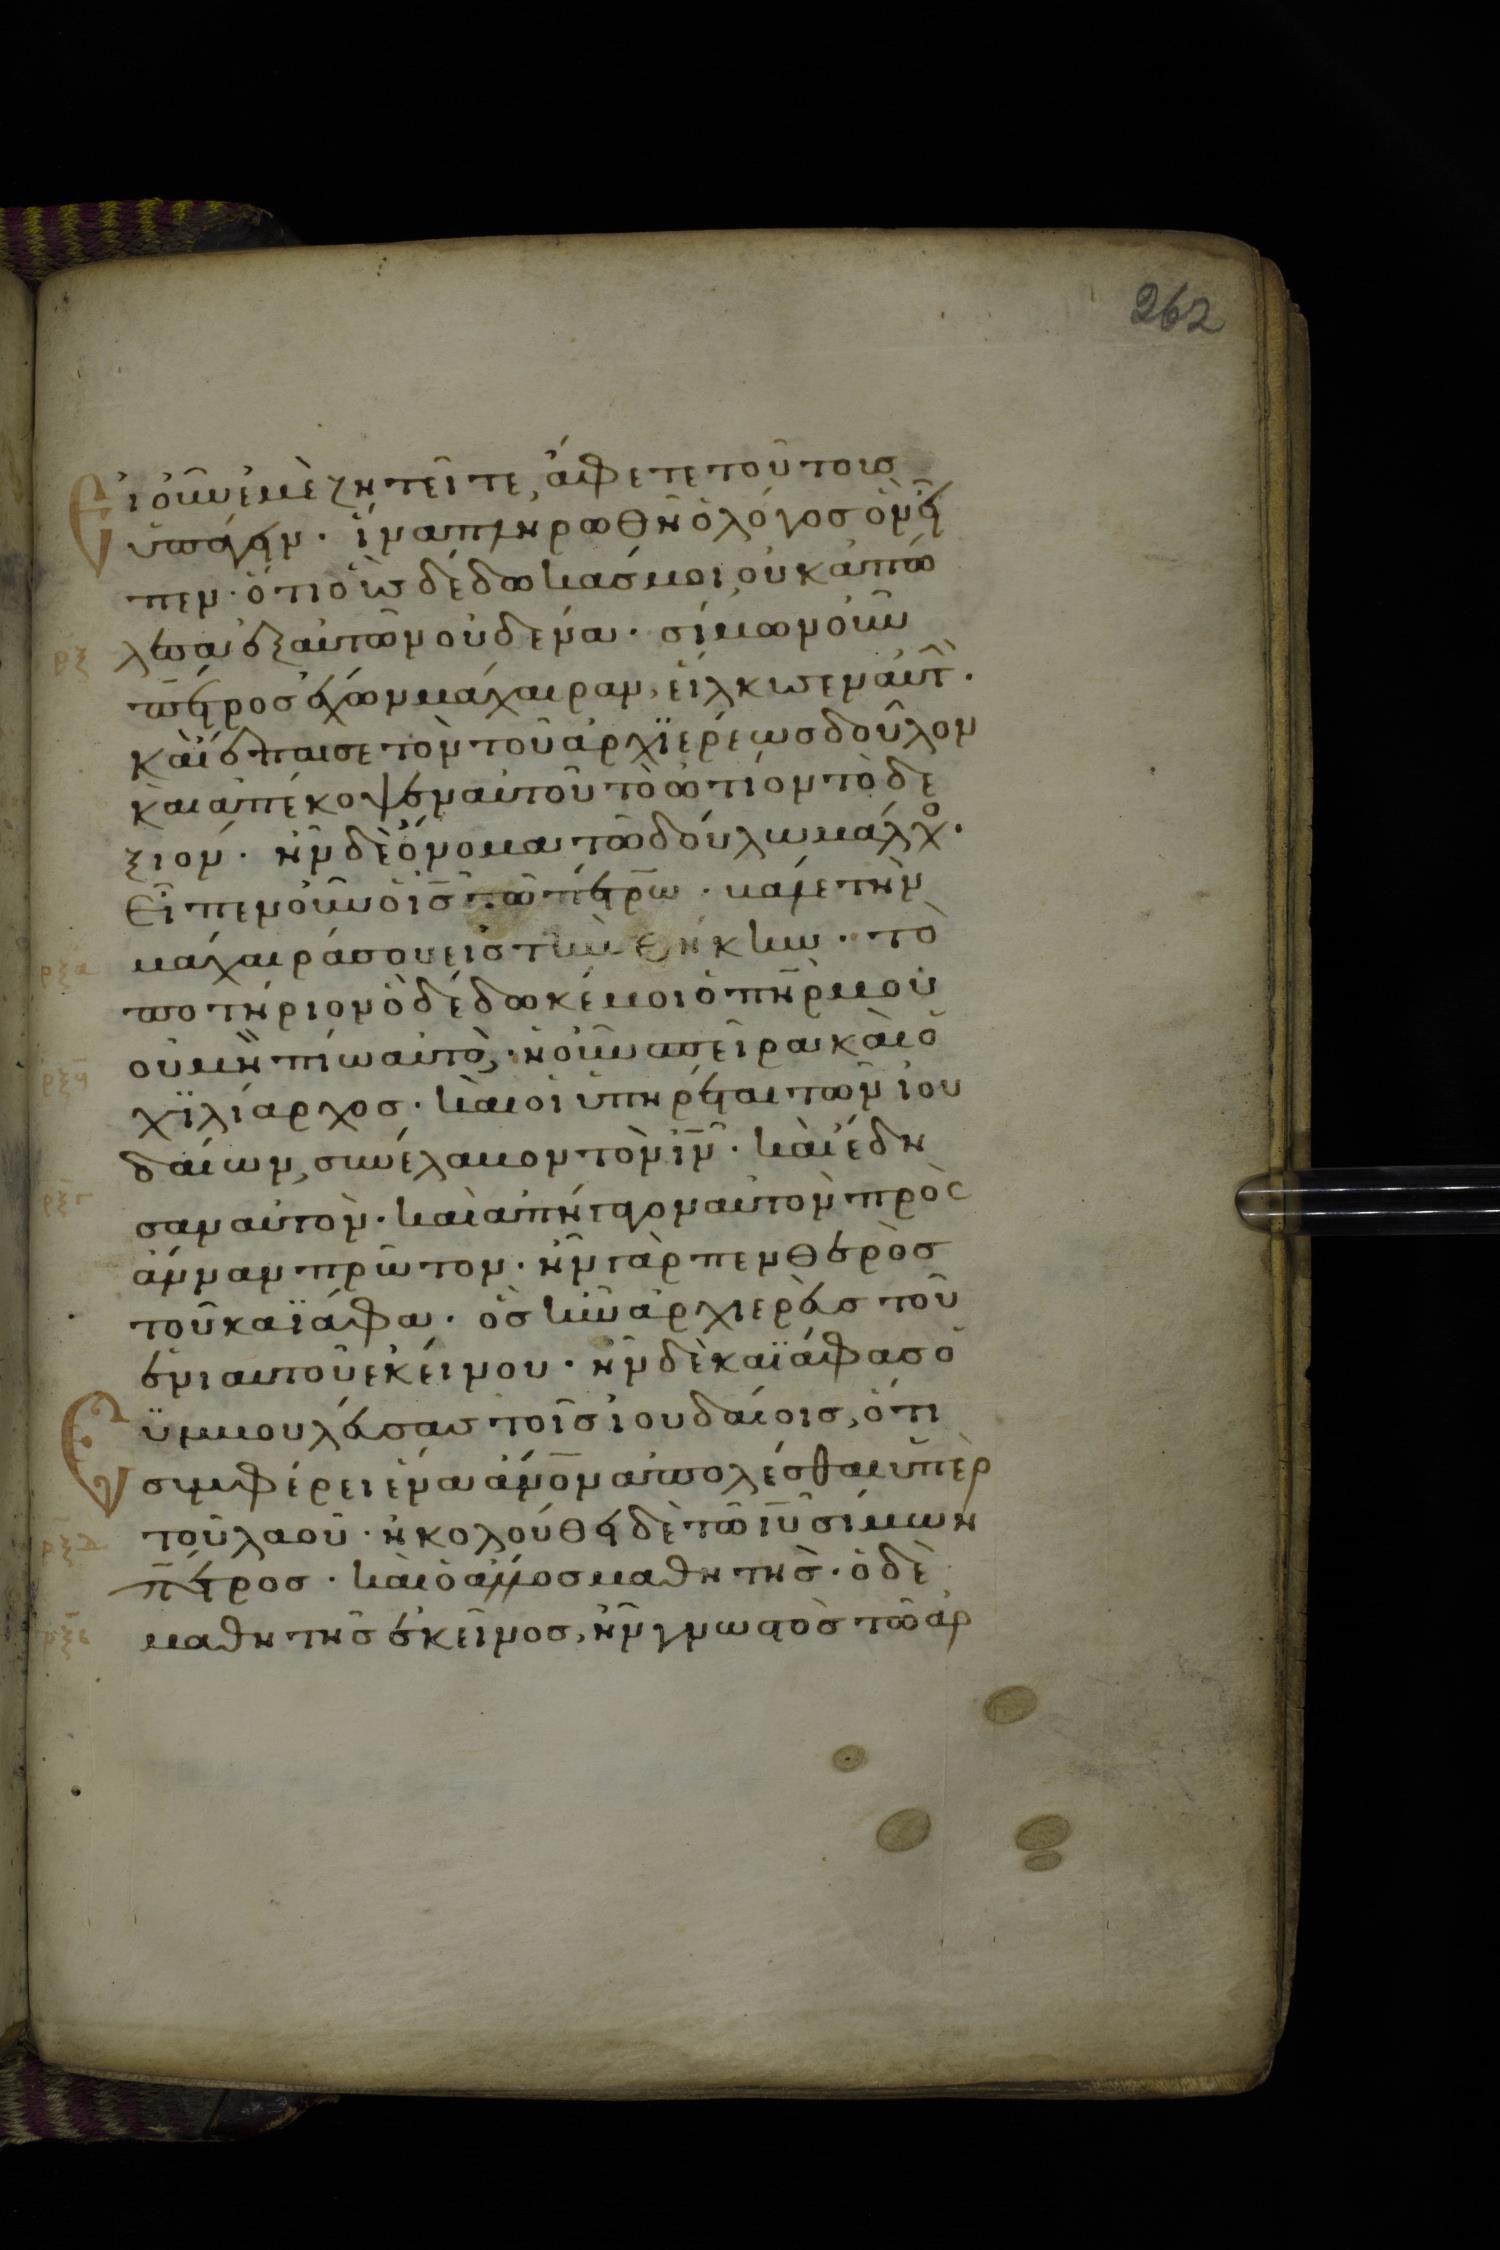 262
Εἰ οὖν ἐμὲ ζητεῖτε, ἄφετε τούτους
ὑπάγειν· ἵνα πληρωθῆ ὁ λόγος ὃν εἶ
πεν· ὅτι οὓς δέδωκάς μοι, οὐκ ἀπώ
λεσα ἐξ αὐτῶν οὐδένα· σίμων οὖν
ρξ
πέτρος ἔχων μάχαιραν, εἵλκυσεν αὐτ̀·
καὶ ἔπαισε τὸν τοῦ ἀρχϊερέως δοῦλον
καὶ ἀπέκοψεν αὐτοῦ τὸ ὠτίον τὸ δε
ξιόν· ἦν δὲ ὄνομα τῶ δούλω μάλχο·
Εἶπεν οὖν ὁ ις̅ τῶ πέτρω· βάλε τὴν
μάχαιράν σου εἰς τὴν θήκην· τὸ
ρξα
ποτήριον ὃ δέδωκέ μοι ὁ πηρ̅ μου
οὐ μὴ πίω αὐτὸ, ἡ οὖν σπεῖρα καὶ ὁ
ρξβ
χϊλίαρχος· καὶ οἱ ὑπηρέται τῶν ἰου
δαίων, συνέλαβον τὸν ιν̅· καὶ ἔδη
σαν αὐτὸν· καὶ ἀπήγαγον αὐτὸν πρὸς
ρξγ
ἄνναν πρῶτον· ἦν γὰρ πενθερὸς
τοῦ καϊάφα· ὃς ἦν ἀρχιερεὺς τοῦ
ἐνιαυτοῦ ἐκείνου· ἦν δὲ καϊάφας ὁ
Συμβουλεύσας τοῖς ἰουδαίοις, ὅτι
συμφέρει ἕνα ἄνο̅ν ἀπολέσθαι ὑπὲρ
τοῦ λαοῦ· ἠκολούθει δὲ τῶ ιυ̅ σίμων
ρξδ
πέτρος· καὶ ὁ ἄλλος μαθητὴς· ὁ δὲ
μαθητῆς ἐκεῖνος, ἦν γνωστὸς τῶ ἀρ
ρξε